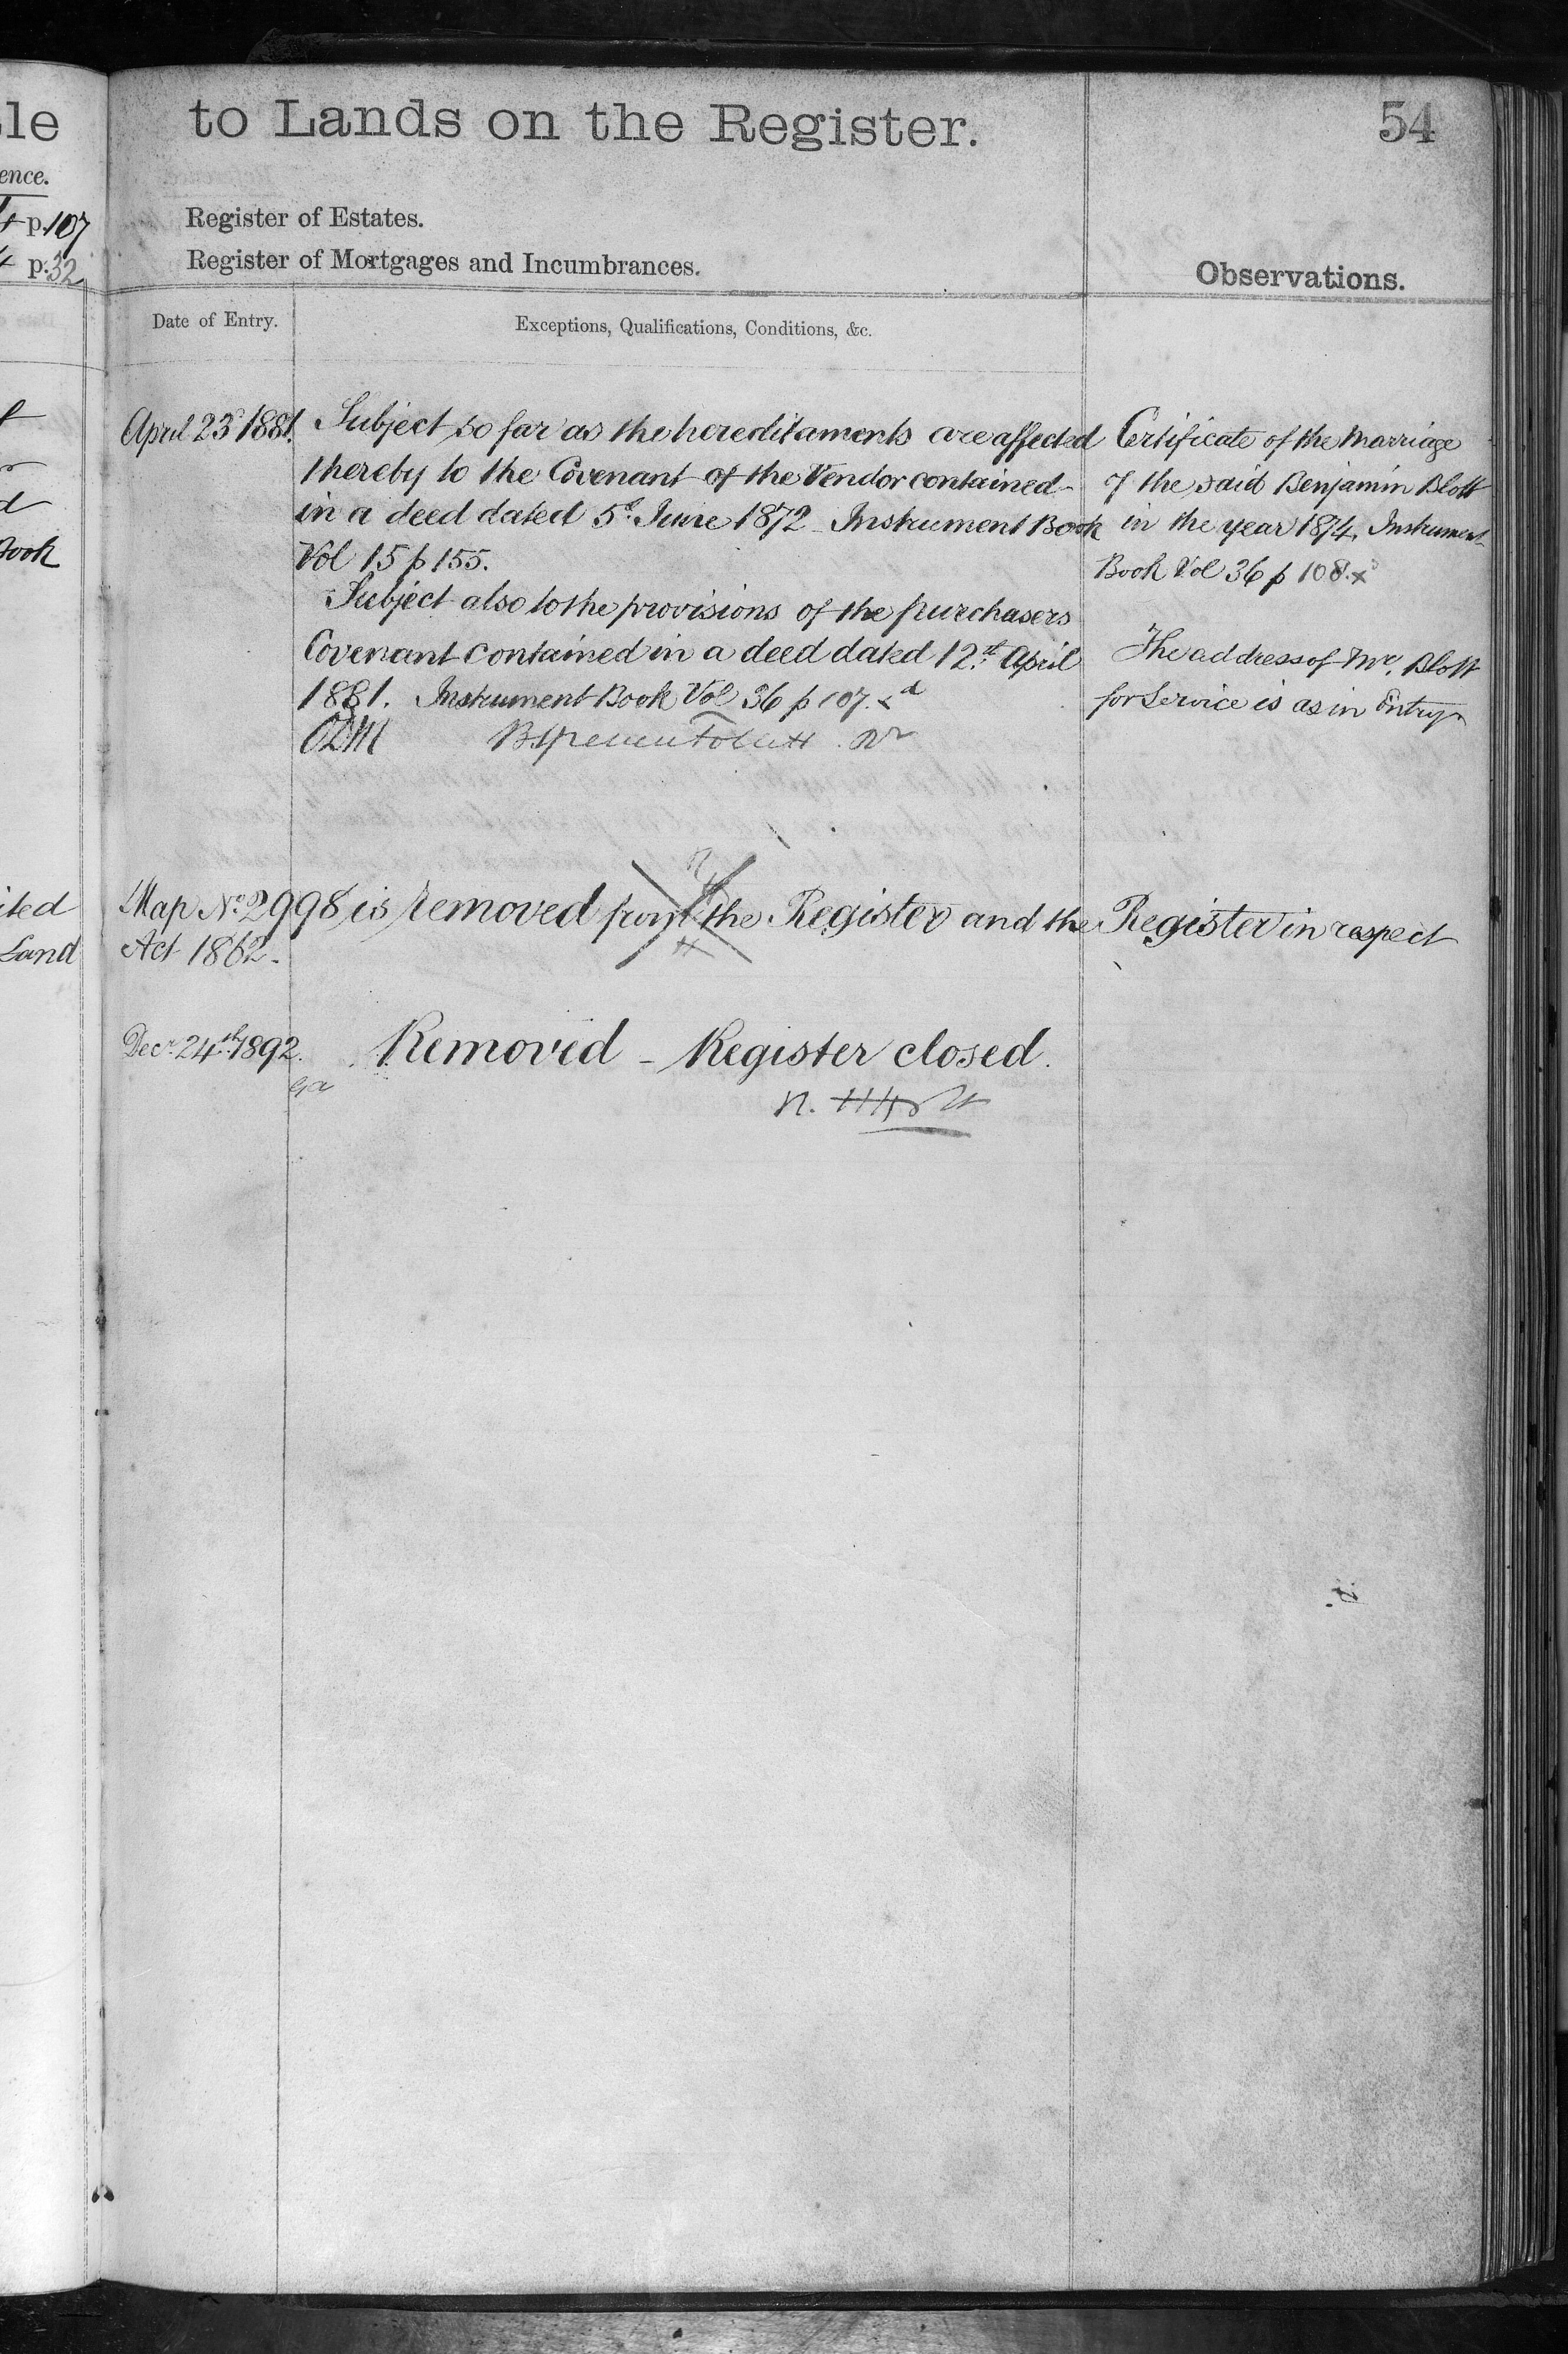 le
to Lands on the Register.
54
ence.
p.107
p.32
Register of Estates.
Register of Mortgages and Incumbrances.
Observations.
Date of Entry.
Exceptions, Qualifications, Conditions, &c.
April 23d 1881.
Subject so far as the hereditaments are affected
thereby to the Covenant of the Vendor contained
in a deed dated 5th June 1872 Instrument Book
Vol 15 p 155.
Subject also to the provisions of the purchasers
Covenant contained in a deed dated 12th April
1881. Instrument Book Vol 36 p 107.
Certificate of the Marriage
of the said Benjamin Blott
in the year 1874, Instrument
Book Vol 36 p 108.
The address of Mr. Blott
for Service is as in Entry
ook
ited
Land
Map No. 2998 is removed from the Register and the Register in respect
Act 1862.
Decr. 24th 1892.
Removed – Register closed.